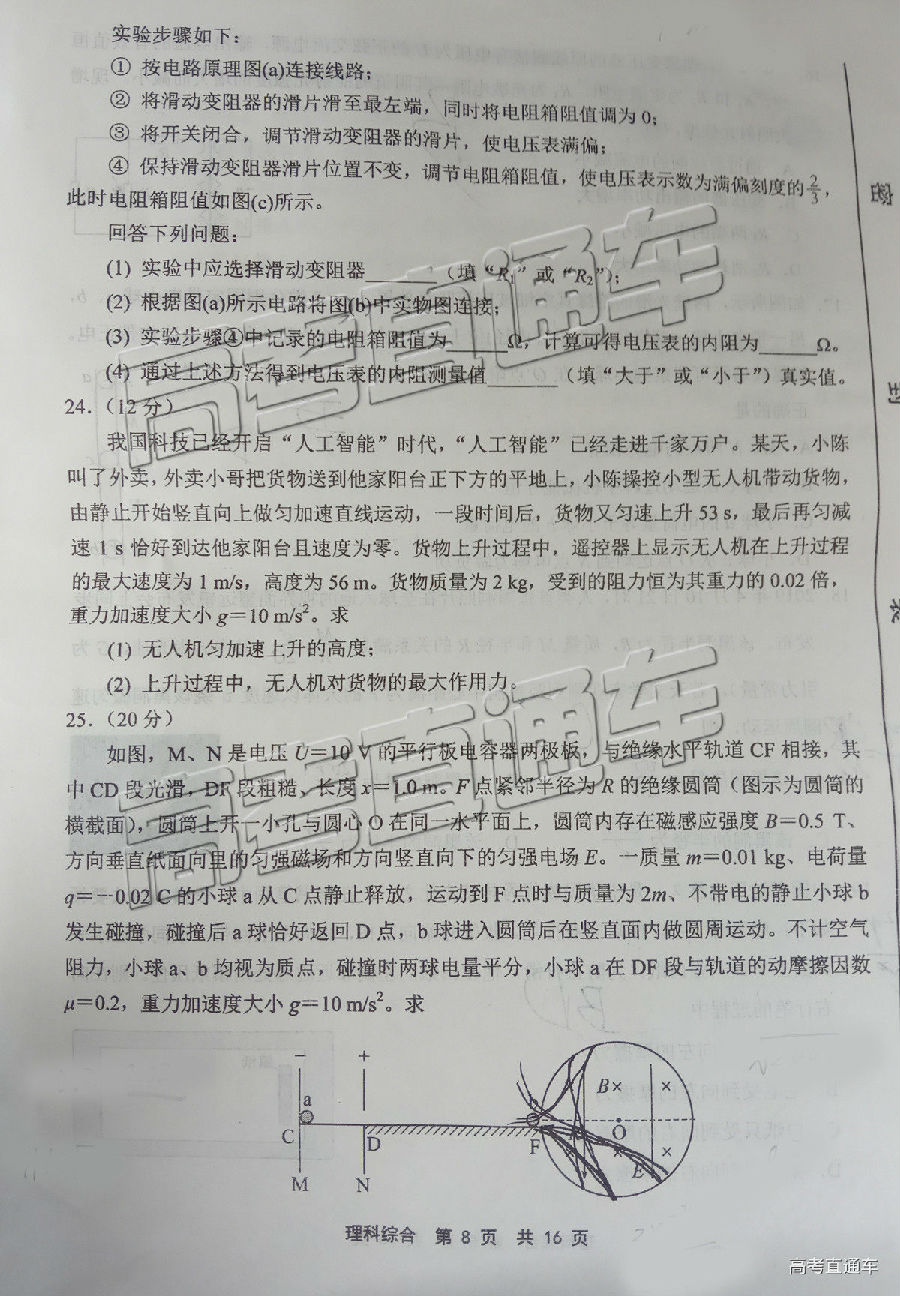 实验步骤如下：
① 按电路原理图(a)连接线路；
② 将滑动变阻器的滑片滑至最左端，同时将电阻箱阻值调为0；
③ 将开关闭合，调节滑动变阻器的滑片，使电压表满偏；
④ 保持滑动变阻器滑片位置不变，调节电阻箱阻值，使电压表示数为满偏刻度的2/3，
此时电阻箱阻值如图(c)所示。
回答下列问题：
(1) 实验中应选择滑动变阻器______（填“R₁”或“R₂”）；
(2) 根据图(a)所示电路将图(b)中实物图连接；
(3) 实验步骤④中记录的电阻箱阻值为______Ω，计算可得电压表的内阻为______Ω。
(4) 通过上述方法得到电压表的内阻测量值______（填“大于”或“小于”）真实值。
24.（12分）
我国科技已经开启“人工智能”时代，“人工智能”已经走进千家万户。某天，小陈
叫了外卖，外卖小哥把货物送到他家阳台正下方的平地上，小陈操控小型无人机带动货物，
由静止开始竖直向上做匀加速直线运动，一段时间后，货物又匀速上升53 s，最后再匀减
速1 s恰好到达他家阳台且速度为零。货物上升过程中，遥控器上显示无人机在上升过程
的最大速度为1 m/s，高度为56 m。货物质量为2 kg，受到的阻力恒为其重力的0.02倍，
重力加速度大小g=10 m/s²。求
(1) 无人机匀加速上升的高度；
(2) 上升过程中，无人机对货物的最大作用力。
25.（20分）
如图，M、N是电压U=10 V的平行板电容器两极板，与绝缘水平轨道CF相接，其
中CD段光滑，DF段粗糙、长度x=1.0 m。F点紧邻半径为R的绝缘圆筒（图示为圆筒的
横截面），圆筒上开一小孔与圆心O在同一水平面上，圆筒内存在磁感应强度B=0.5 T、
方向垂直纸面向里的匀强磁场和方向竖直向下的匀强电场E。一质量m=0.01 kg、电荷量
q=-0.02 C的小球a从C点静止释放，运动到F点时与质量为2m、不带电的静止小球b
发生碰撞，碰撞后a球恰好返回D点，b球进入圆筒后在竖直面内做圆周运动。不计空气
阻力，小球a、b均视为质点，碰撞时两球电量平分，小球a在DF段与轨道的动摩擦因数
μ=0.2，重力加速度大小g=10 m/s²。求
- +
a
B
C D F O
E
M N
理科综合 第8页 共16页
密
封
高考直通车
高考直通车
高考直通车